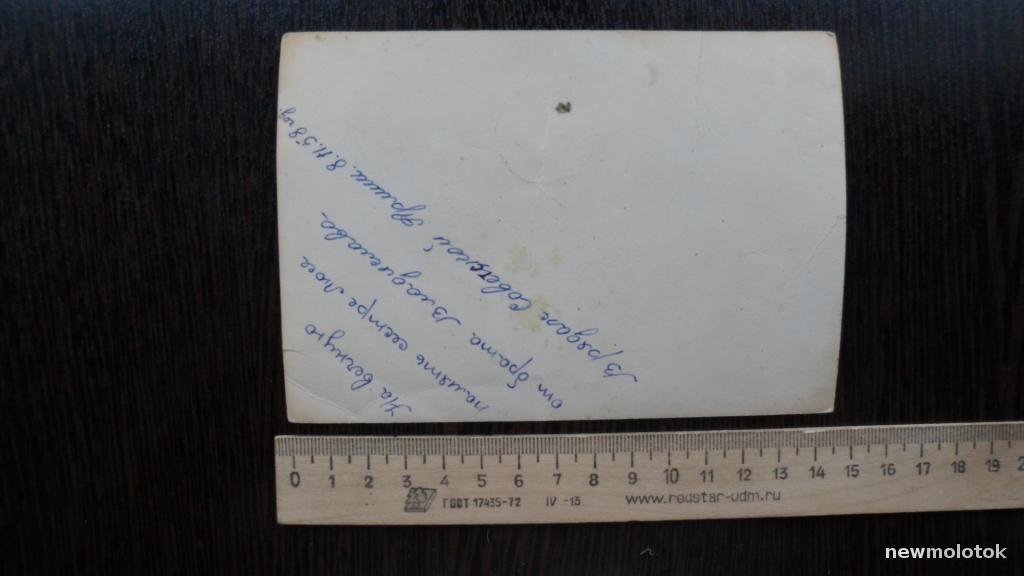 На вечную
память сестре Люсе
от брата Владислава.
В рядах Советской Армии. 8.11.58 год.
0 1 2 3 4 5 6 7 8 9 10 11 12 13 14 15 16 17 18 19
ГОСТ 17435-72 IV -13 www.redstar-udm.ru
newmolotok